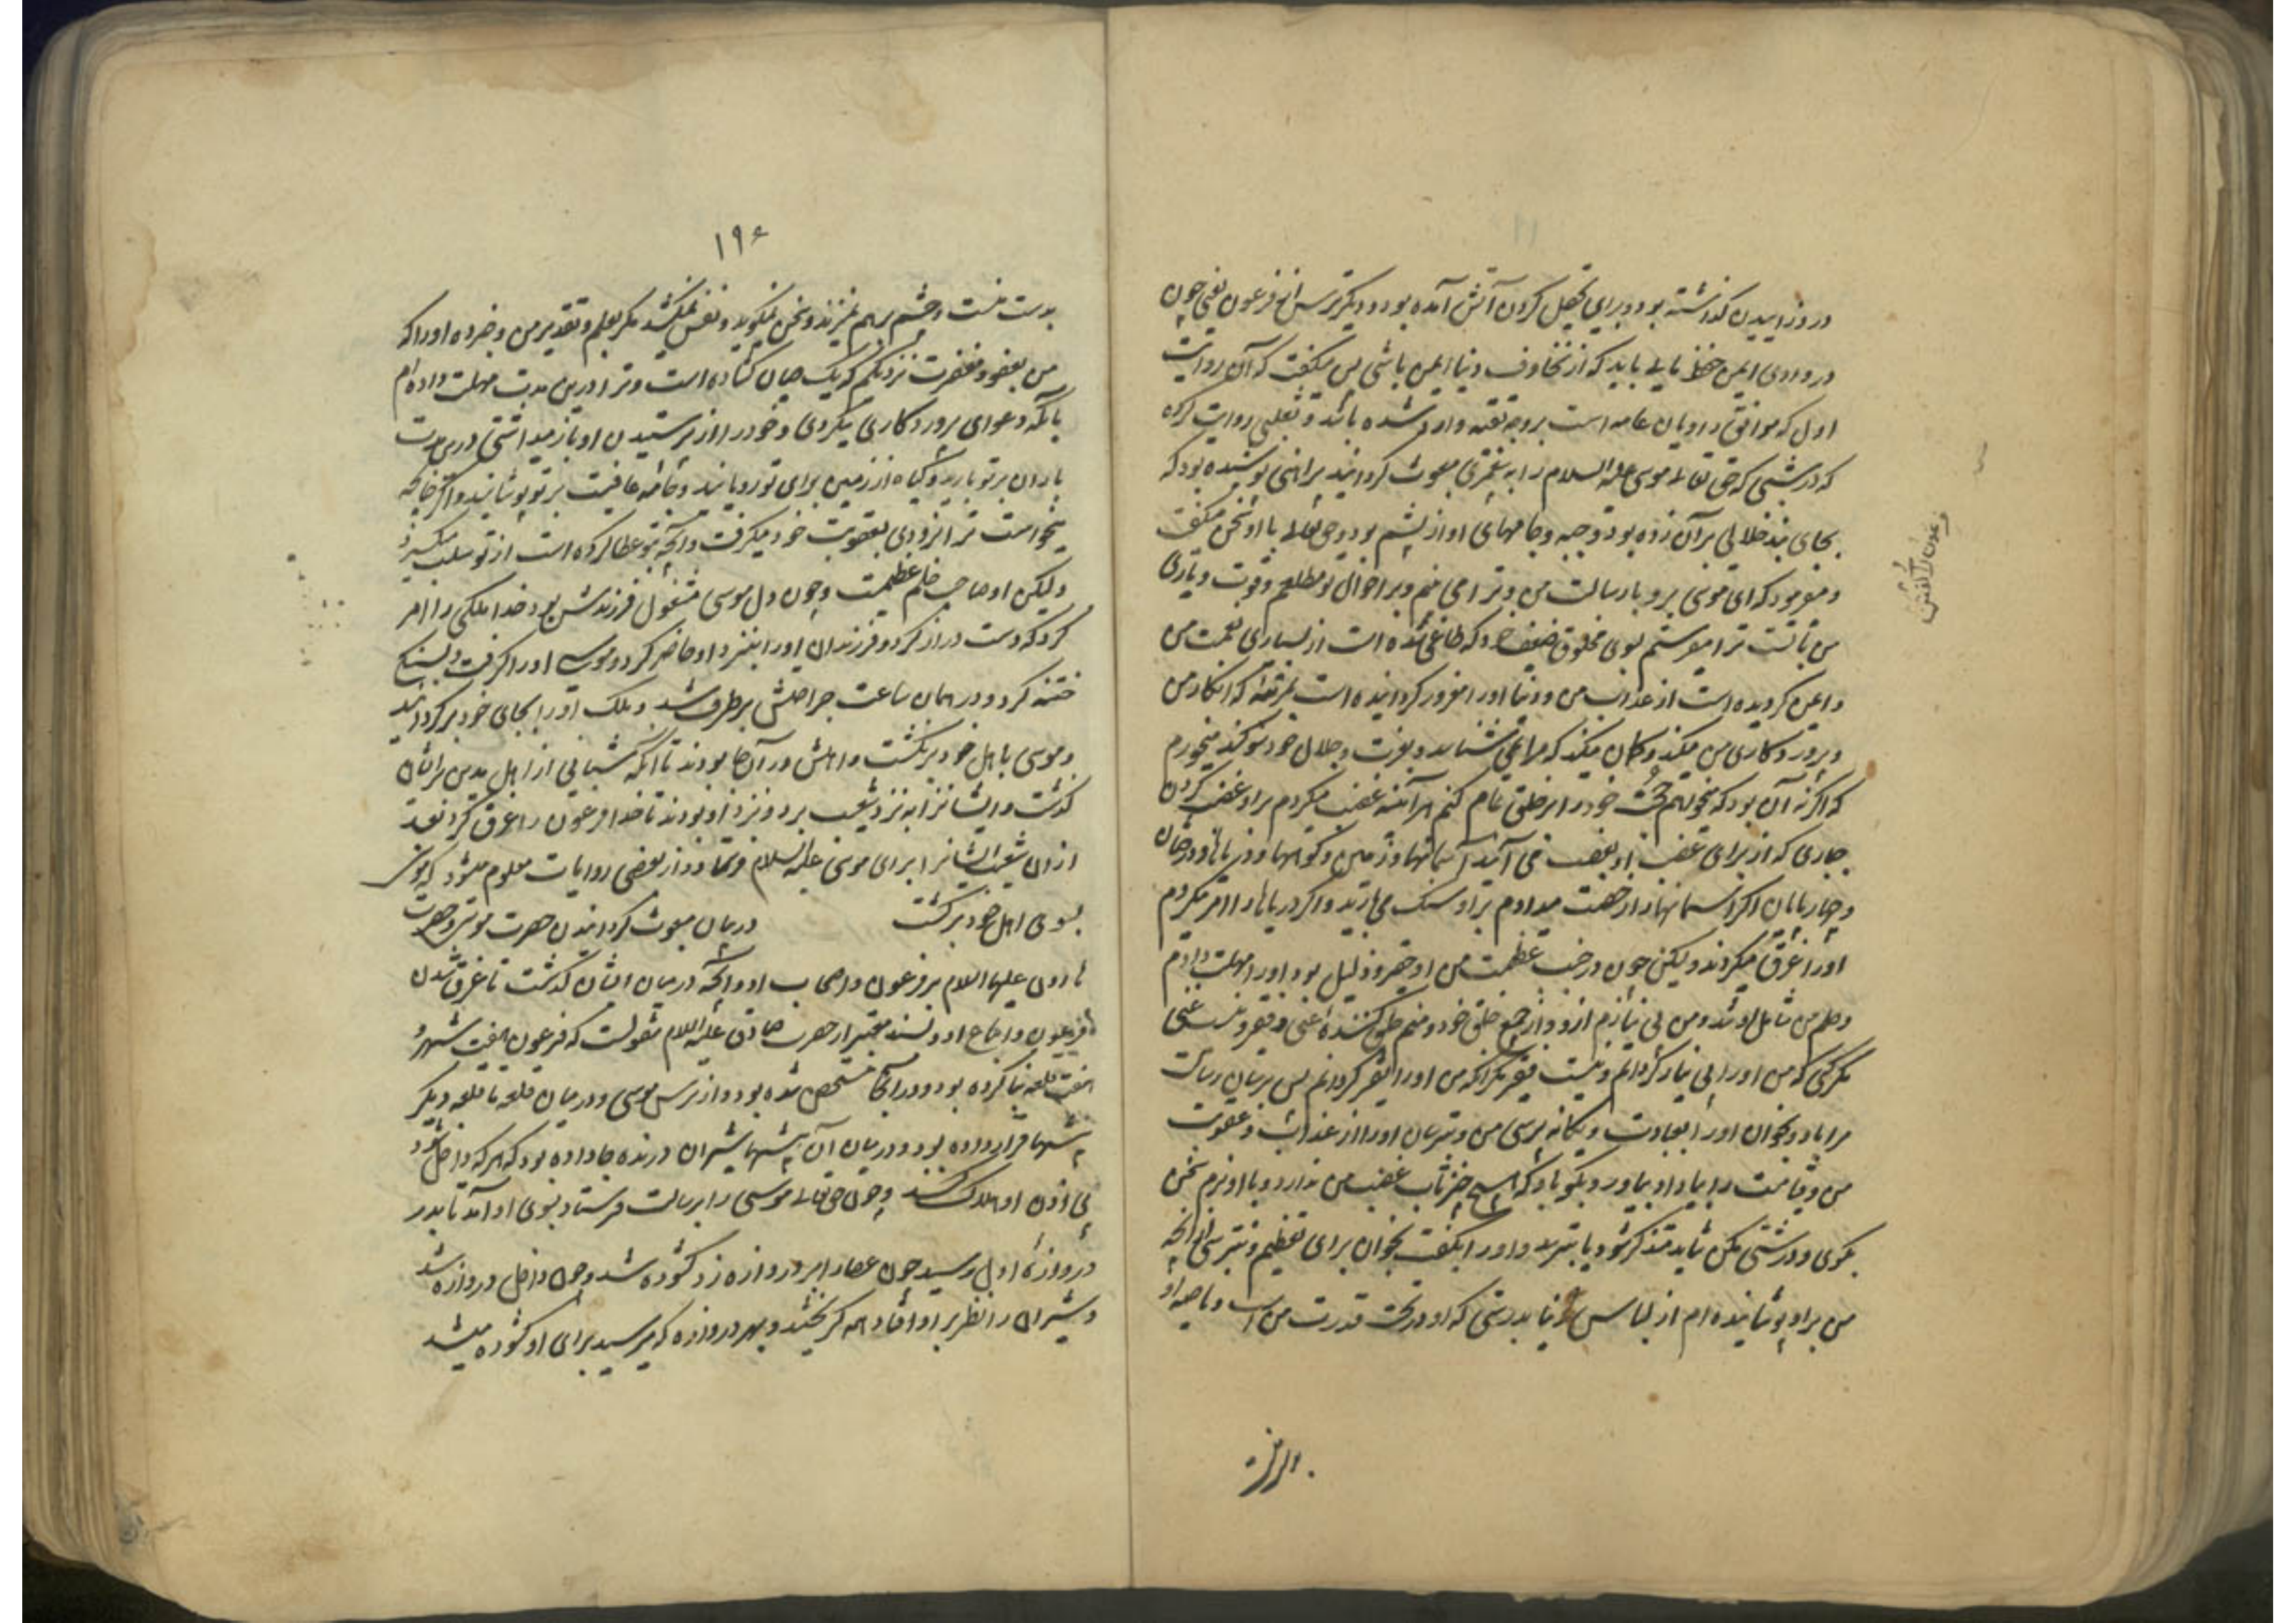 در وزائیدن گذاشته بود و برای تحصیل کردن آتش آمده بود و دیگر ترس از فرعون یعنی چون
در وادی ایمن حفظ مائی باید که از مخاوف دنیا ایمن باشی پس میگفت که آن روایت
اول که موافق راویان عامه است بر وجه تقیه وارد شده باشد و ثعلبی روایت کرده
که در شبی که حق تعالی موسی علیه السلام را به پیغمبری مبعوث گردانید پیراهنی پوشیده بود که
بجای بند خلالی بر آن زده بود و جبه و جامهای او از پشم بود و حق تعالی با او سخن میگفت
و میفرمود که ای موسی برو با رسالت من و ترا می بینم و بر احوال تو مطلعم و قوت و یاری
من با تست ترا میفرستم بسوی مخلوق ضعیف خود که طاغی شده است از بسیاری نعمت من
و ایمن گردیده است از عذاب من و دنیا او را مغرور گردانیده است بمرتبه که انکار من
و پروردکاری من میکند و گمان میکند که مرا نمی شناسد و بعزت و جلال خود سوگند میخورم
که اگر نه آن بود که میخواهم حجت خود را بر خلق تمام کنم هر آینه غضب میکردم بر او غضب کردن
جباری که از برای غضب او بغضب می آیند آسمانها و زمین و کوهها و دریاها و درختان
و چهارپایان اگر آسمانها را رخصت میدادم بر او سنک می بارید و اگر دریاها را امر میکردم
او را غرق میکردند ولیکن چون در جنب عظمت من او حقیر و ذلیل بود او را مهلت دادم
و حلم من شامل او شد و من بی نیازم از او و از جمیع خلق خود و منم خلق کننده غنی و فقیر و نیست غنی
مگر کسی که من او را بی نیاز گردانم و نیست فقیر مگر آنکه من او را فقیر گردانم پس برسان رسالت
مرا باو و بخوان او را بعبادت و یگانه پرستی من و بترسان او را از عذاب و عقوبت
من و قیامت را بیاد او بیاور و بگو باو که هیچ چیز تاب غضب من ندارد و با او نرم سخن
بگوی و درشتی مکن شاید متذکر شود یا بترسد و او را بکنیت بخوان برای تعظیم و مترس از آنچه
من بر او پوشانیده ام از لباس دنیا بدرستی که او در تحت قدرت من است و ناصیه او
۱۹۶
بدست منست و چشم برهم نمیزند و سخن نمیگوید و نفس نمیکشد مگر بعلم و تقدیر من و خبر ده او را که
من بعفو و مغفرت نزدیکترم که یک میان گشاده است و ترا در این مدت مهلت داده ام
با آنکه دعوای پروردکاری میکردی و خود را از پرستیدن او باز میداشتی در این مدت
باران بر تو بارید و گیاه از زمین برای تو رویانید و جامه عافیت بر تو پوشانید و اگر چنانچه
میخواست ترا بزودی بعقوبت خود میگرفت و آنچه بتو عطا کرده است از تو سلب میکرد
ولیکن او صاحب حلم عظیمست و چون دل موسی مشغول فرزندش بود خدا ملکی را امر
کرد که دست دراز کرد و فرزندان او را بنزد او حاضر کرد و موسی او را گرفت و بسنگ
ختنه کرد و در همان ساعت جراحتش برطرف شد و ملک او را بجای خود برگردانید
و موسی با اهل خود برنگشت و اهلش در آنجا بودند تا آنکه شبانی از اهل مدین بر ایشان
گذشت و ایشانرا به نزد شعیب برد و نزد او بودند تا خدا فرعون را غرق کرد بعد
از آن شعیب ایشانرا برای موسی علیه السلام فرستاد و از بعضی روایات معلوم میشود که موسی
بسوی اهل خود برگشت در بیان مبعوث گردانیدن حضرت موسی و حضرت
هارون علیهما السلام بر فرعون و اصحاب او و آنچه در میان ایشان گذشت تا غرق شدن
فرعون و اتباع او و بسند معتبر از حضرت صادق علیه السلام منقولست که فرعون هفت شهر و
هفت قلعه بنا کرده بود و در آنجا متحصن شده بود و از ترس موسی و در میان قلعه تا قلعه دیگر
بیشها قرار داده بود و در میان آن بیشها شیران درنده جا داده بود که هر که داخل شود
بی اذن او هلاک کنند و چون حق تعالی موسی را برسالت فرستاد بسوی او آمد تا بدر
دروازه اول رسید چون عصا را بر دروازه زد گشوده شد و چون داخل دروازه شد
و شیران را نظر بر او افتاد همه گریختند و بهر دروازه که میرسید برای او گشوده میشد